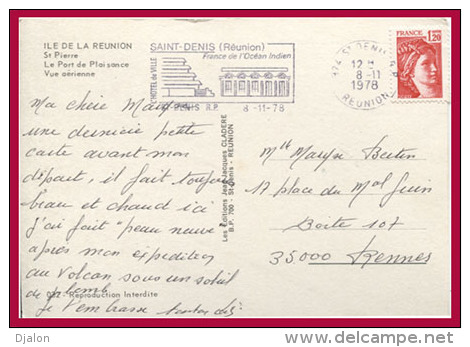 ILE DE LA REUNION
St Pierre
Le Port de Plaisance
Vue aérienne
SAINT-DENIS (Réunion)
France de l'Océan Indien
L'HOTEL de VILLE
ST DENIS R.P. 8 -11-78
974 ST DENIS R.P.
12 H
8 -11
1978
REUNION
FRANCE
1,20
Ma chère Maryse
une dernière petite
carte avant mon
départ, il fait toujours
beau et chaud ici
j'ai fait "peau neuve"
après mon expédition
au Volcan sous un soleil
de plomb
Je t'embrasse
Reproduction Interdite
Les Editions Jean-Jacques CLADERE
B.P. 700 St-Denis - REUNION
Mlle Maryse Bertin
17 place du Mal Juin
Boite 107
35000 Rennes
Djalon
delcampe.net